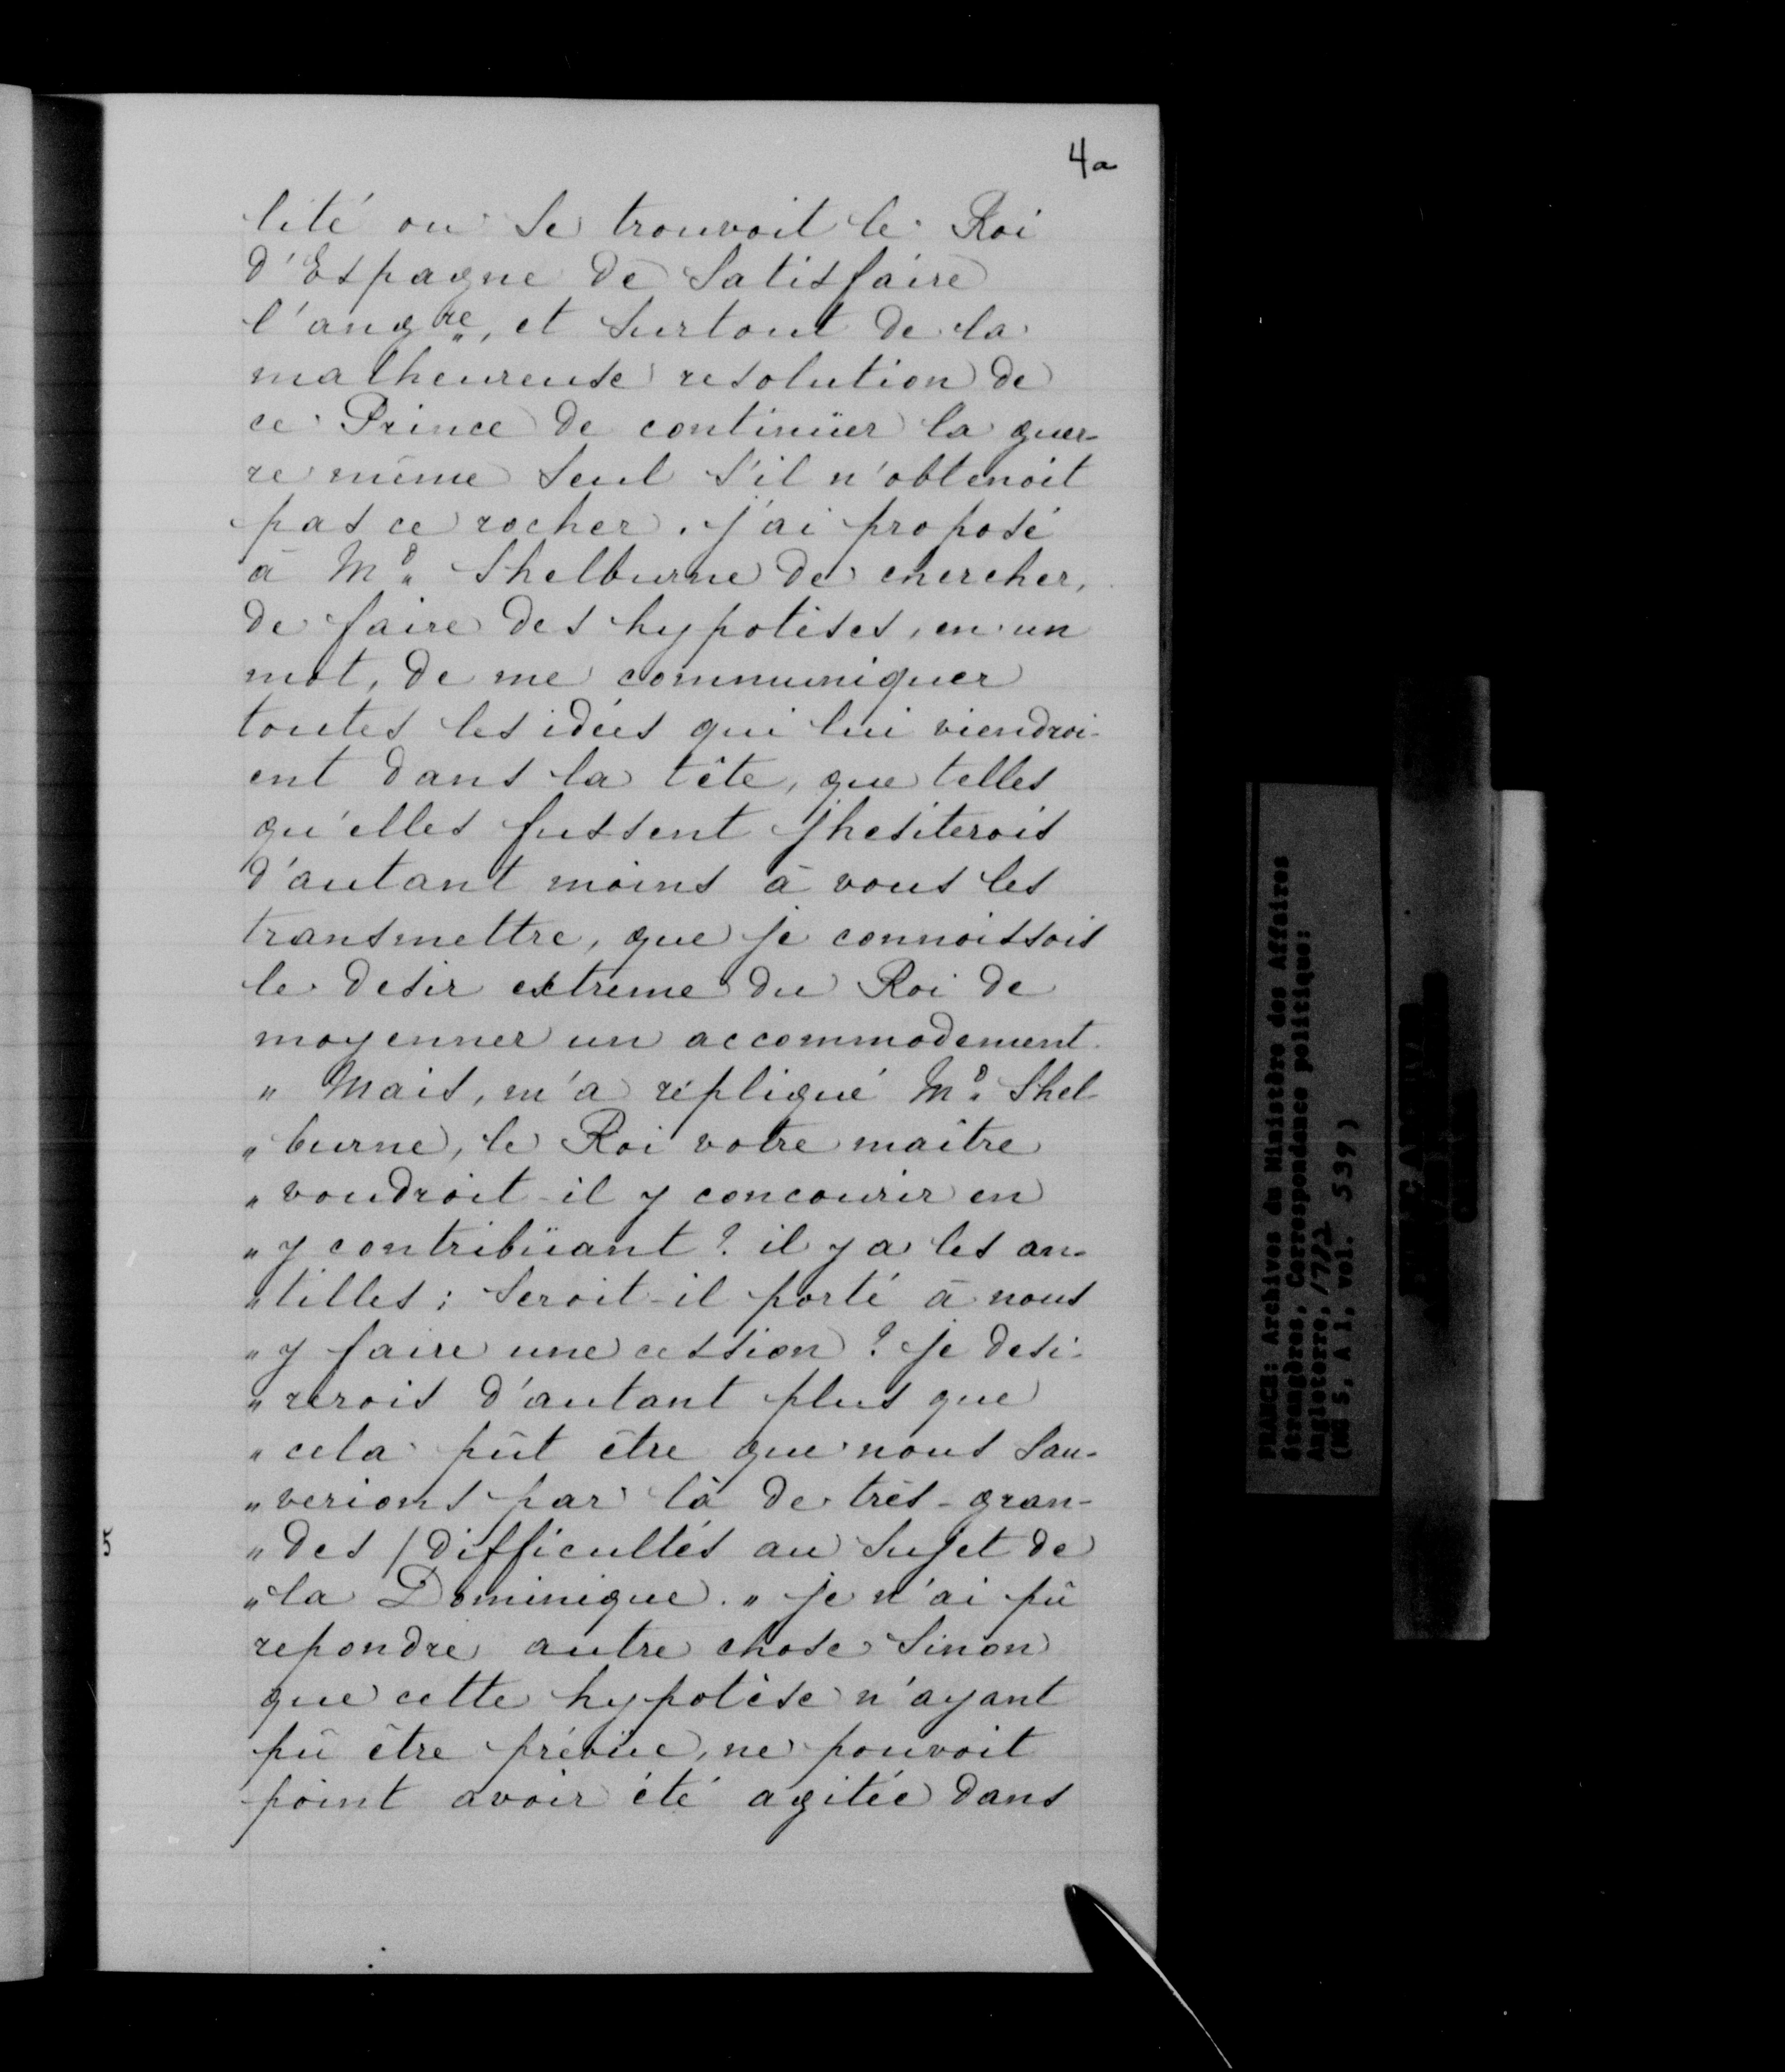 4a
lité ou se trouvoit le Roi
d'Espagne de satisfaire
l'angre, et surtout de la
malheureuse resolution de
ce Prince de continüer la guer-
re même seul s'il n'obtenoit
pas ce rocher. j'ai proposé
à Md. Shelburne de chercher,
de faire des hypotéses, en un
mot, de me communiquer
toutes les idées qui lui viendroi-
ent dans la tête, que telles
qu'elles fussent j'hesiterois
d'autant moins à vous les
transmettre, que je connoissois
le desir extreme du Roi de
moyenner un accommodement.
" Mais, m'a répliqué Md. Shel-
" burne, le Roi votre maître
" voudroit-il y concourir en
" y contribüant ? il y a les an-
" tilles ; seroit-il porté à nous
" y faire une cession ? je desi-
" rerois d'autant plus que
" cela pût être que nous sau-
" verions par là de très-gran-
5 " des / difficultés au sujet de
" la Dominique. " je n'ai pû
repondre autre chose sinon
que cette hypotèse n'ayant
pû être prévüe, ne pouvoit
point avoir été agitée dans
FRANCE: Archives du Ministère des Affaires
étrangères, Correspondance politique:
Angleterre, 1782
(MG 5, A 1, vol. 539)